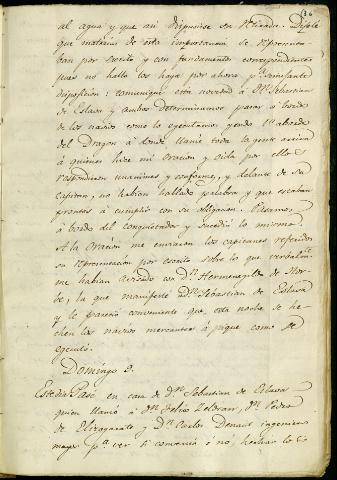 36
al agua y que assi dispusiese su Md. Dijele
que materias de esta importancia se representa-
ban por escrito y con fundamentos correspondientes
pues no hallo los haya por ahora pa. semejante
disposicion: comuniqué esta novedad á Dn. Sebastian
de Eslava y ambos determinamos pasar a bordo
de los navios como lo ejecutamos yendo 1º abordo
del Dragon á donde llamé toda la gente arriva
á quienes hize mi oracion y oida por ellos
respondieron unanimes y conformes, y delante de su
capitan, no habian hallado palabra y que estaban
prontos á cumplir con su obligacion. Pasamos
á bordo del conquistador y sucedió lo mismo.
A la oracion me enviaron los capitanes referidos
su representacion por escrito sobre lo que verbalmte.
me habian avisado con Dn. Hermenegildo de
la que manifesté á Dn. Sebastian de Eslava
y le pareció conveniente que esta noche se he-
chen los navios mercantes á pique como se
ejecutó.
Domingo 2.
Este dia Pasé en casa de Dn. Sebastian de Eslava
quien llamó á Dn. Felix Beltran, Dn. Pedro
de Elizagarate y Dn. Carlos Denaux ingeniero
mayor pa. ver si convenia ó nó, hechar lo